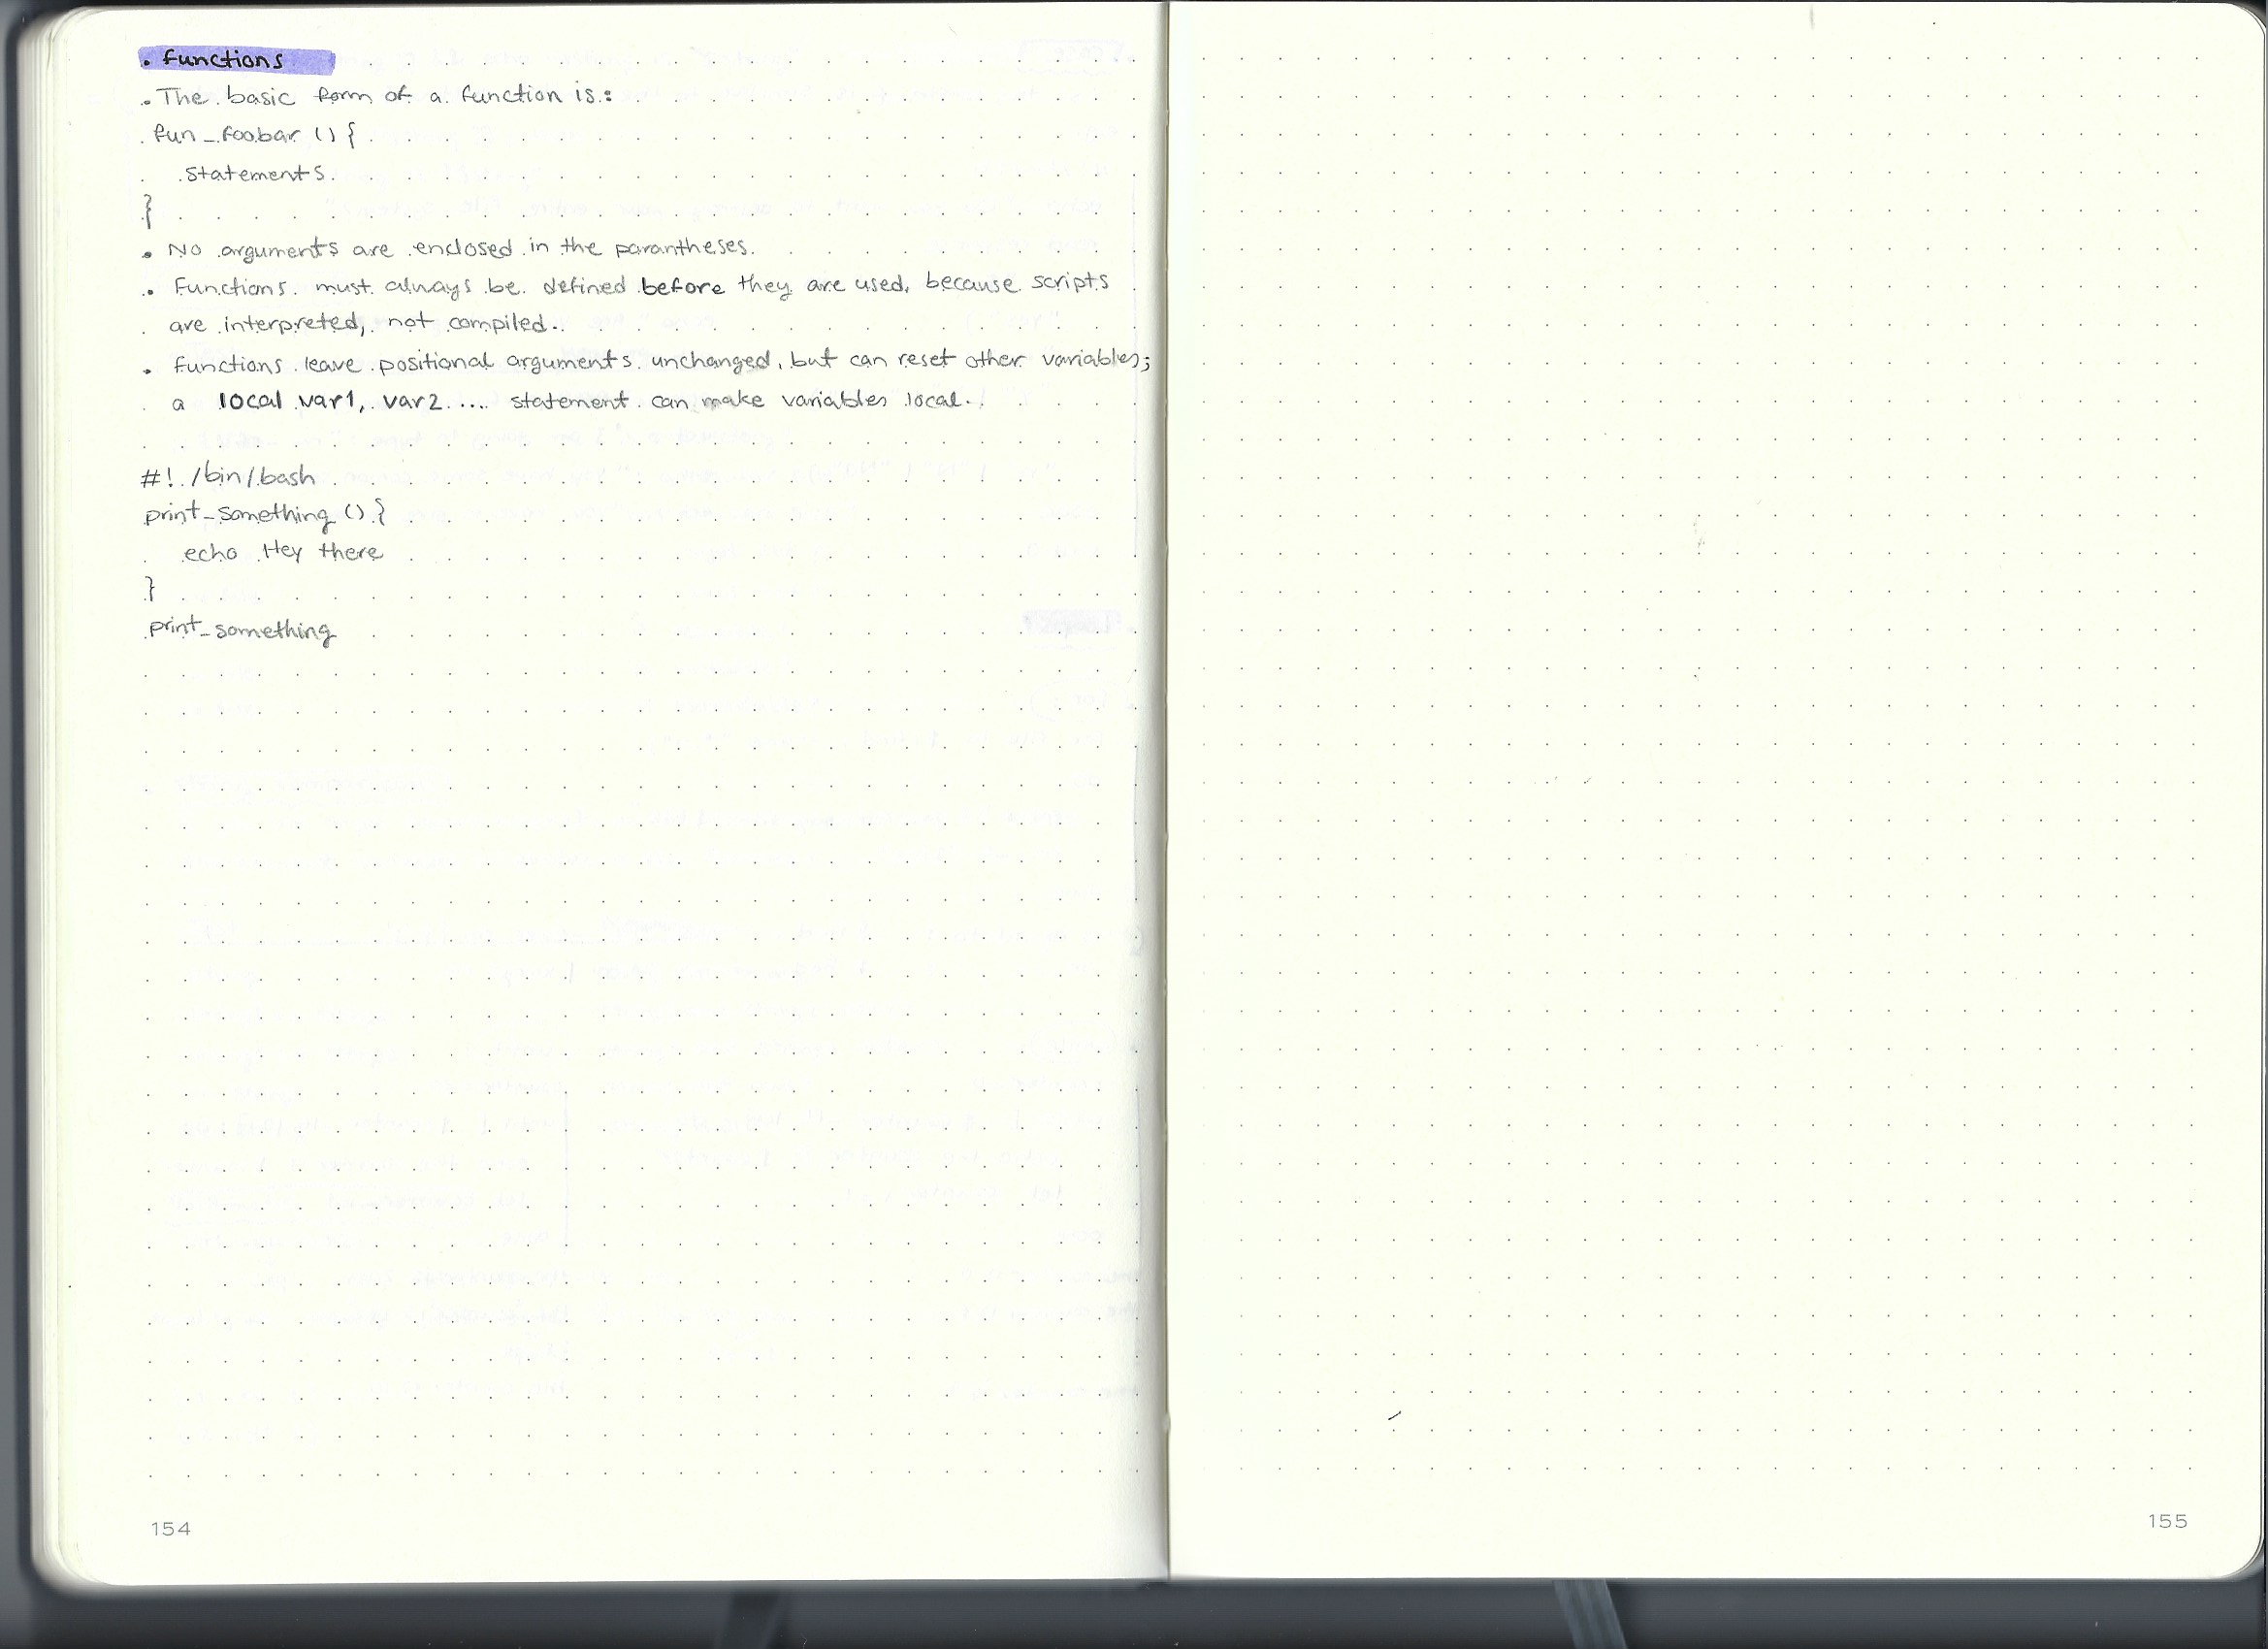 . Functions
. The basic form of a function is:
fun_foobar () {
statements
}
. No arguments are enclosed in the parantheses.
. Functions must always be defined before they are used, because scripts
are interpreted, not compiled.
. Functions leave positional arguments unchanged, but can reset other variables;
a local var1, var2 .... statement can make variables local.
#! /bin/bash
print_something () {
echo Hey there
}
print_something
154
155